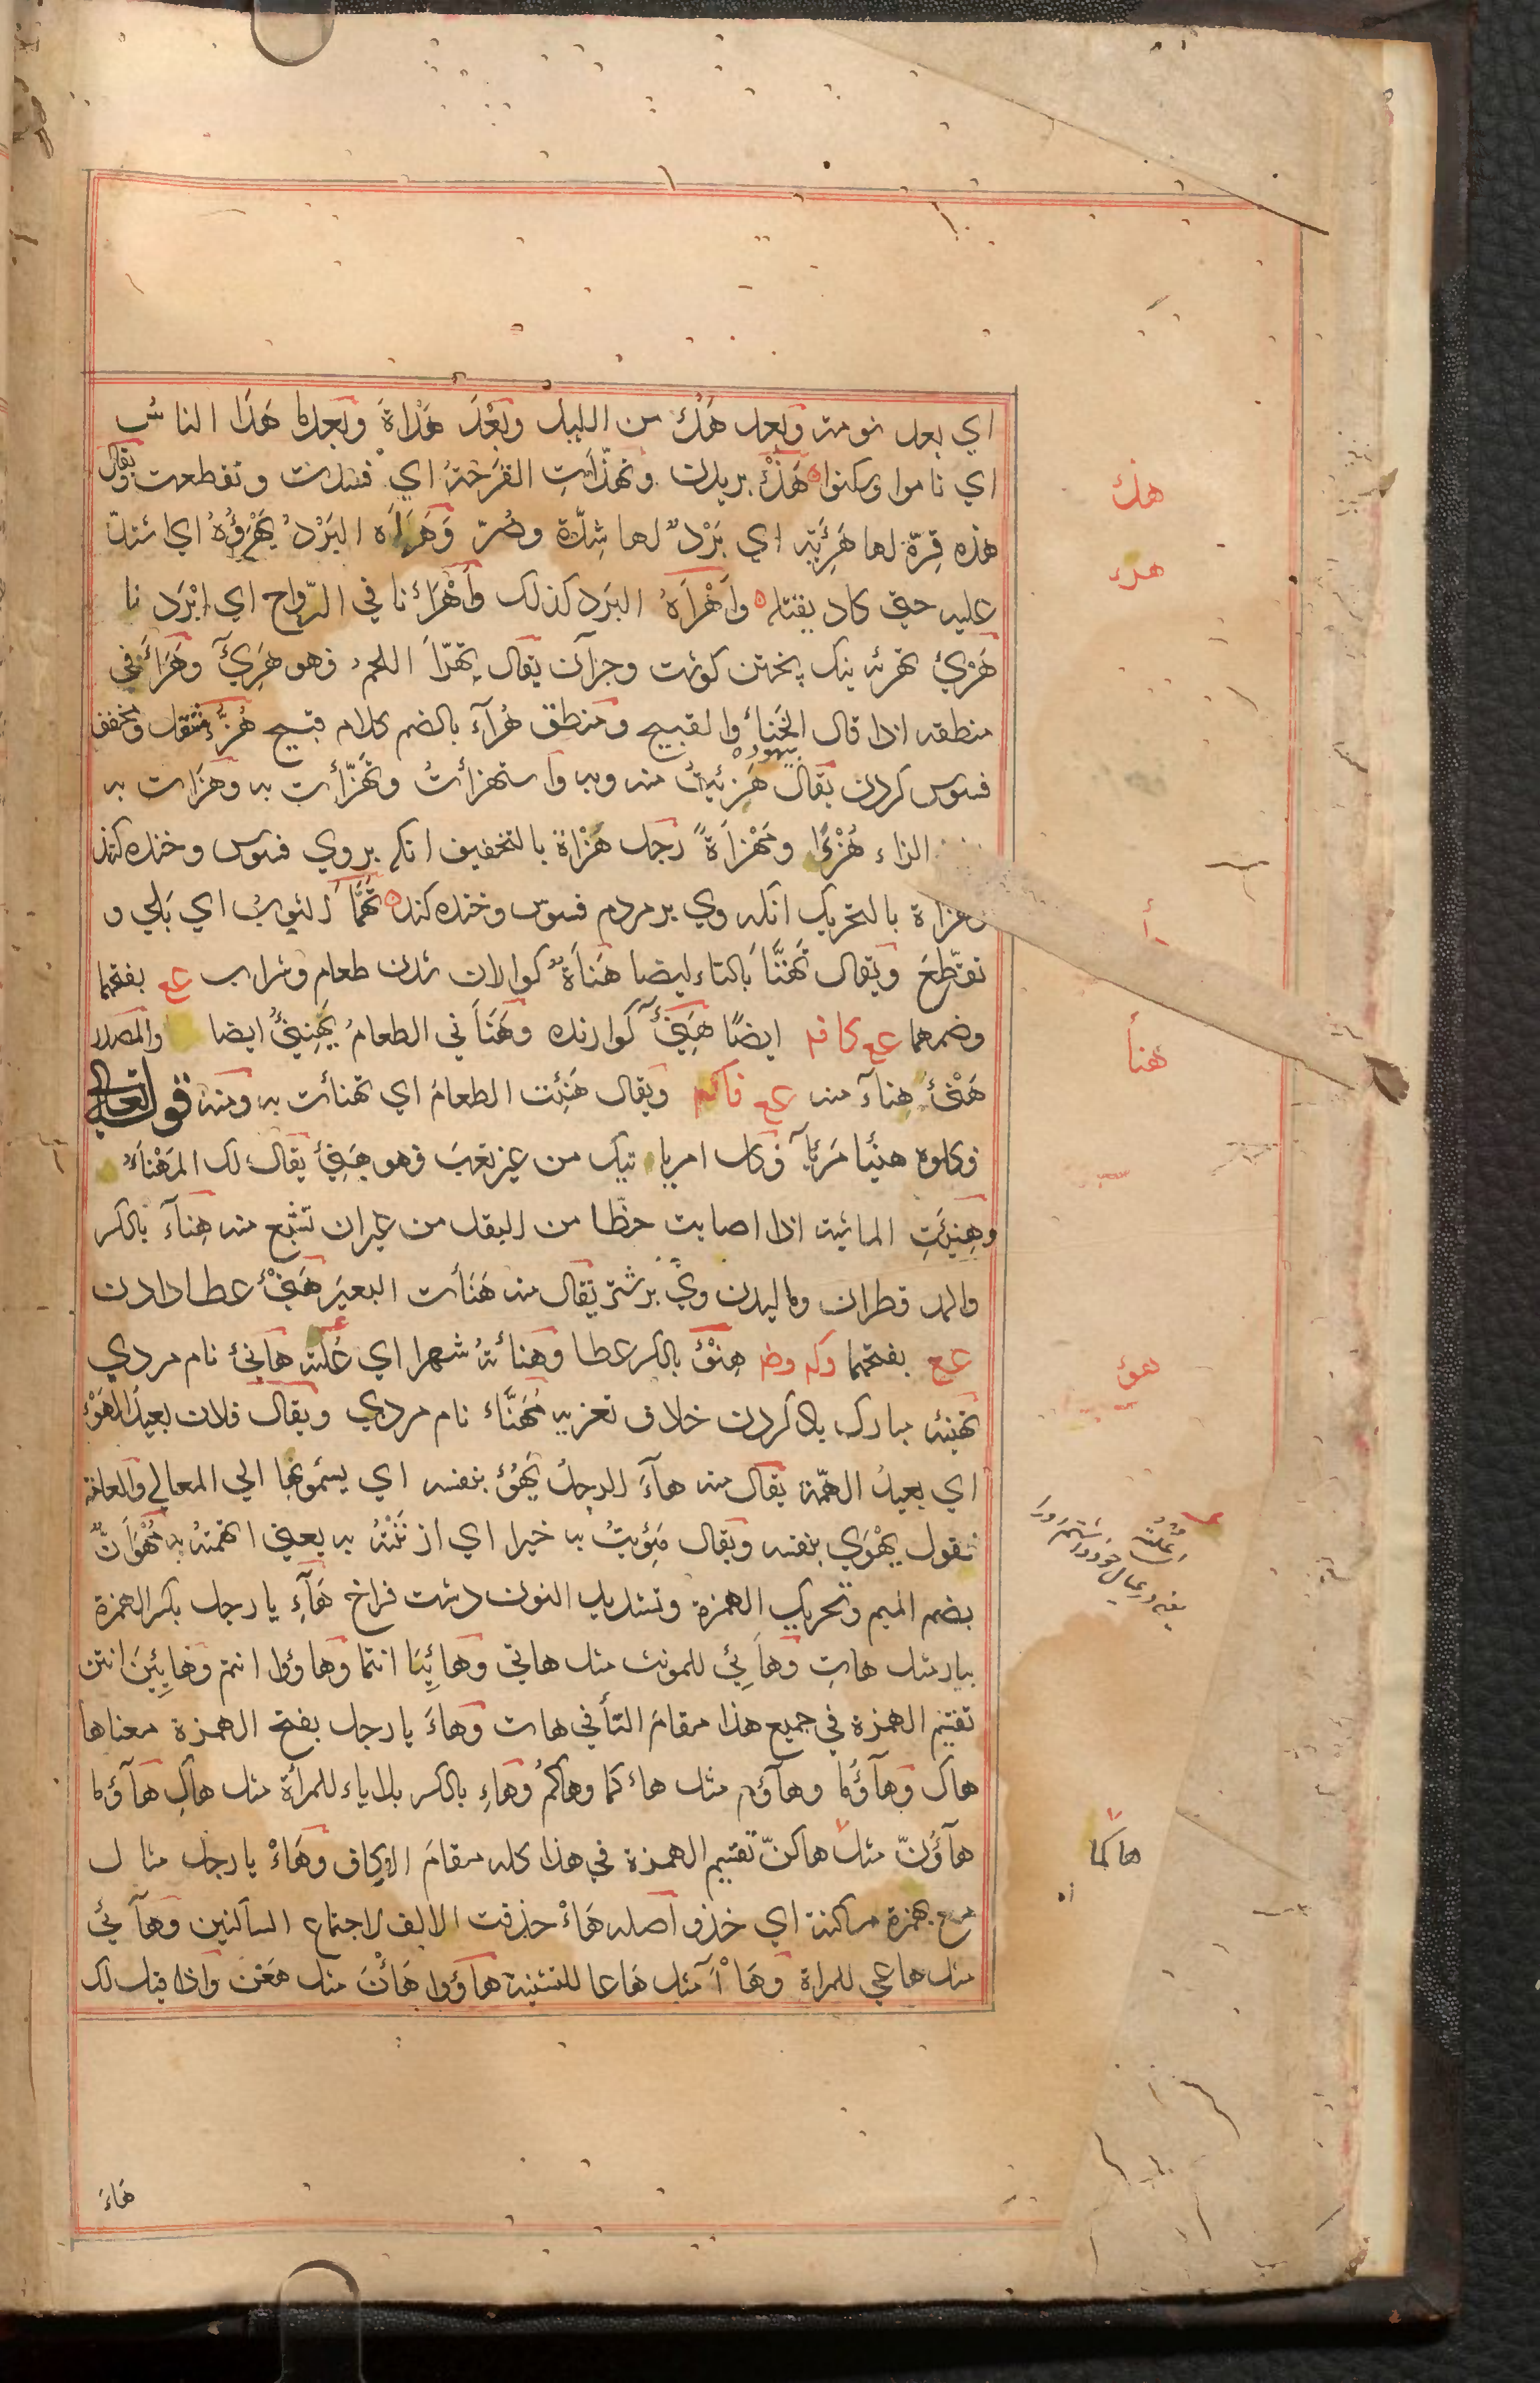 اي بعد نومة وبعد هَدْءٍ من الليل وبَعْدَ هَدْاةَ وبعد ما هَدَا الناس
اي ناموا وسكنوا هَذْءُ بريدن وتَهَذّاَتِ القَرحَةُ اي فسدت وتقطعت ويقال
هذه قِرّة لها هَرِيَّة اي بَرْدٌ لها شِدّة وضُرّ وَهَرَاَه البَرْدُ يَهْرَؤُهُ اي اشتدّ
عليه حتى كاد يقتله واَهْرَاَهُ البَرد كذلك وَاَهْرَأنا في الرّواح اي ابْرَدنا
هَرْيُ تهرئه نيك پختن كوشت وجزآن يقال تَهرّاَ اللحم فهو هَرِيٌ وهَرَأَ في
منطقه اذا قال الخَنا والقبيح ومنطق هُرآء بالضم كلام قبيح هُزْءُ مثقل ومخفف
بيهوده
فسوس كردن يقال هَزِئْتُ منه وبه واستهزأتُ وتَهَزّأت به وهَزَات به
الزاء هُزْءًا ومَهْزَاَةً رجل هُزْاة بالتخفيف انكه بروي فسوس وخنده كنند
وهزاة بالتحريك انكه وي بر مردم فسوس وخنده كند تَهَمّاَ الثوبُ اي بَلِي و
تقطّعَ ويقال تَهَتّاَ بالتاء ايضا هَنَاَةٌ كواران شدن طعام وشراب عع بفتحهما
وضمهما عع كا فم ايضًا هَنِيٌ كوارنده وهَنَاَ ني الطعامُ يَهْنِئُ ايضا والمصدر
هَنْئُ هناَء منه عع فا كم ويقال هَنِئت الطعامَ اي تهنأت به ومنه قوله تعالى
فكلوه هنيًا مَرِيًا وكل امر ياتيك من غير تعب فهو هَنِئ يقال لك المَهْنَاَ
وهِنِئَتِ الماشية اذا اصابت حظّا من البقل من غير ان تشبع منه هِناَء بالكسر
والمد قطران وماليدن وي بر شتر يقال منه هَنَأت البعيرَ هَنْئ عطا دادن
عع بفتحهما وكم وضم هِنْؤ بالكسر عطا وهنأتهُ شهرا اي عُلته هانئ نام مردي
تهنئه مبارك باد كردن خلاف تعزيه مُهَنَّاء نام مردي ويقال فلان بعيد الهَوْء
اي بعيدُ الهمّة يقال منه هآءَ الرجلُ يَهُؤُ بنفسه اي يسمو بها الي المعالي والعامة
تقول يهْوَي بنفسه ويقال هُؤتُ به خيرا اي ازنَنْتُهُ به يعني اتهمتهُ به مُهْوَاَنٌّ
بضم الميم وتحريك الهمزة وتشديد النون دشت فراخ هَآءِ يا رجل بكسر الهمزة
بيار مثل هاتِ وهاَئي للمونث مثل هاتي وهائِيَا انتما وهاؤوا انتم وهائِينَ انتن
تقيم الهمزة في جميع هذا مقامَ التأ في هات وهاءَ يا رجل بفتح الهمزة معناها
هاك وهآؤُما وهآؤم مثل هاء كما وهاكُم وهاءِ بالكسر بلا ياء للمرأة مثل هاكِ هآؤما
هآؤُنّ مثل هاكنّ تقيم الهمزة في هذا كله مقامَ الكاف وهَاءْ يا رجل مثال
مع همزة ساكنة اي خذ واصله هَاءْ حذفت الالف لاجتماع الساكنين وهاَئي
مثل هاعي للمراة وهَاْاَ مثل هَاعا للتثنية هآؤوا هَأْنَ مثل هَعْنَ واذا قيل لك
هَاءَ
هذء
هرء
هنأ
هوؤ
هاكما